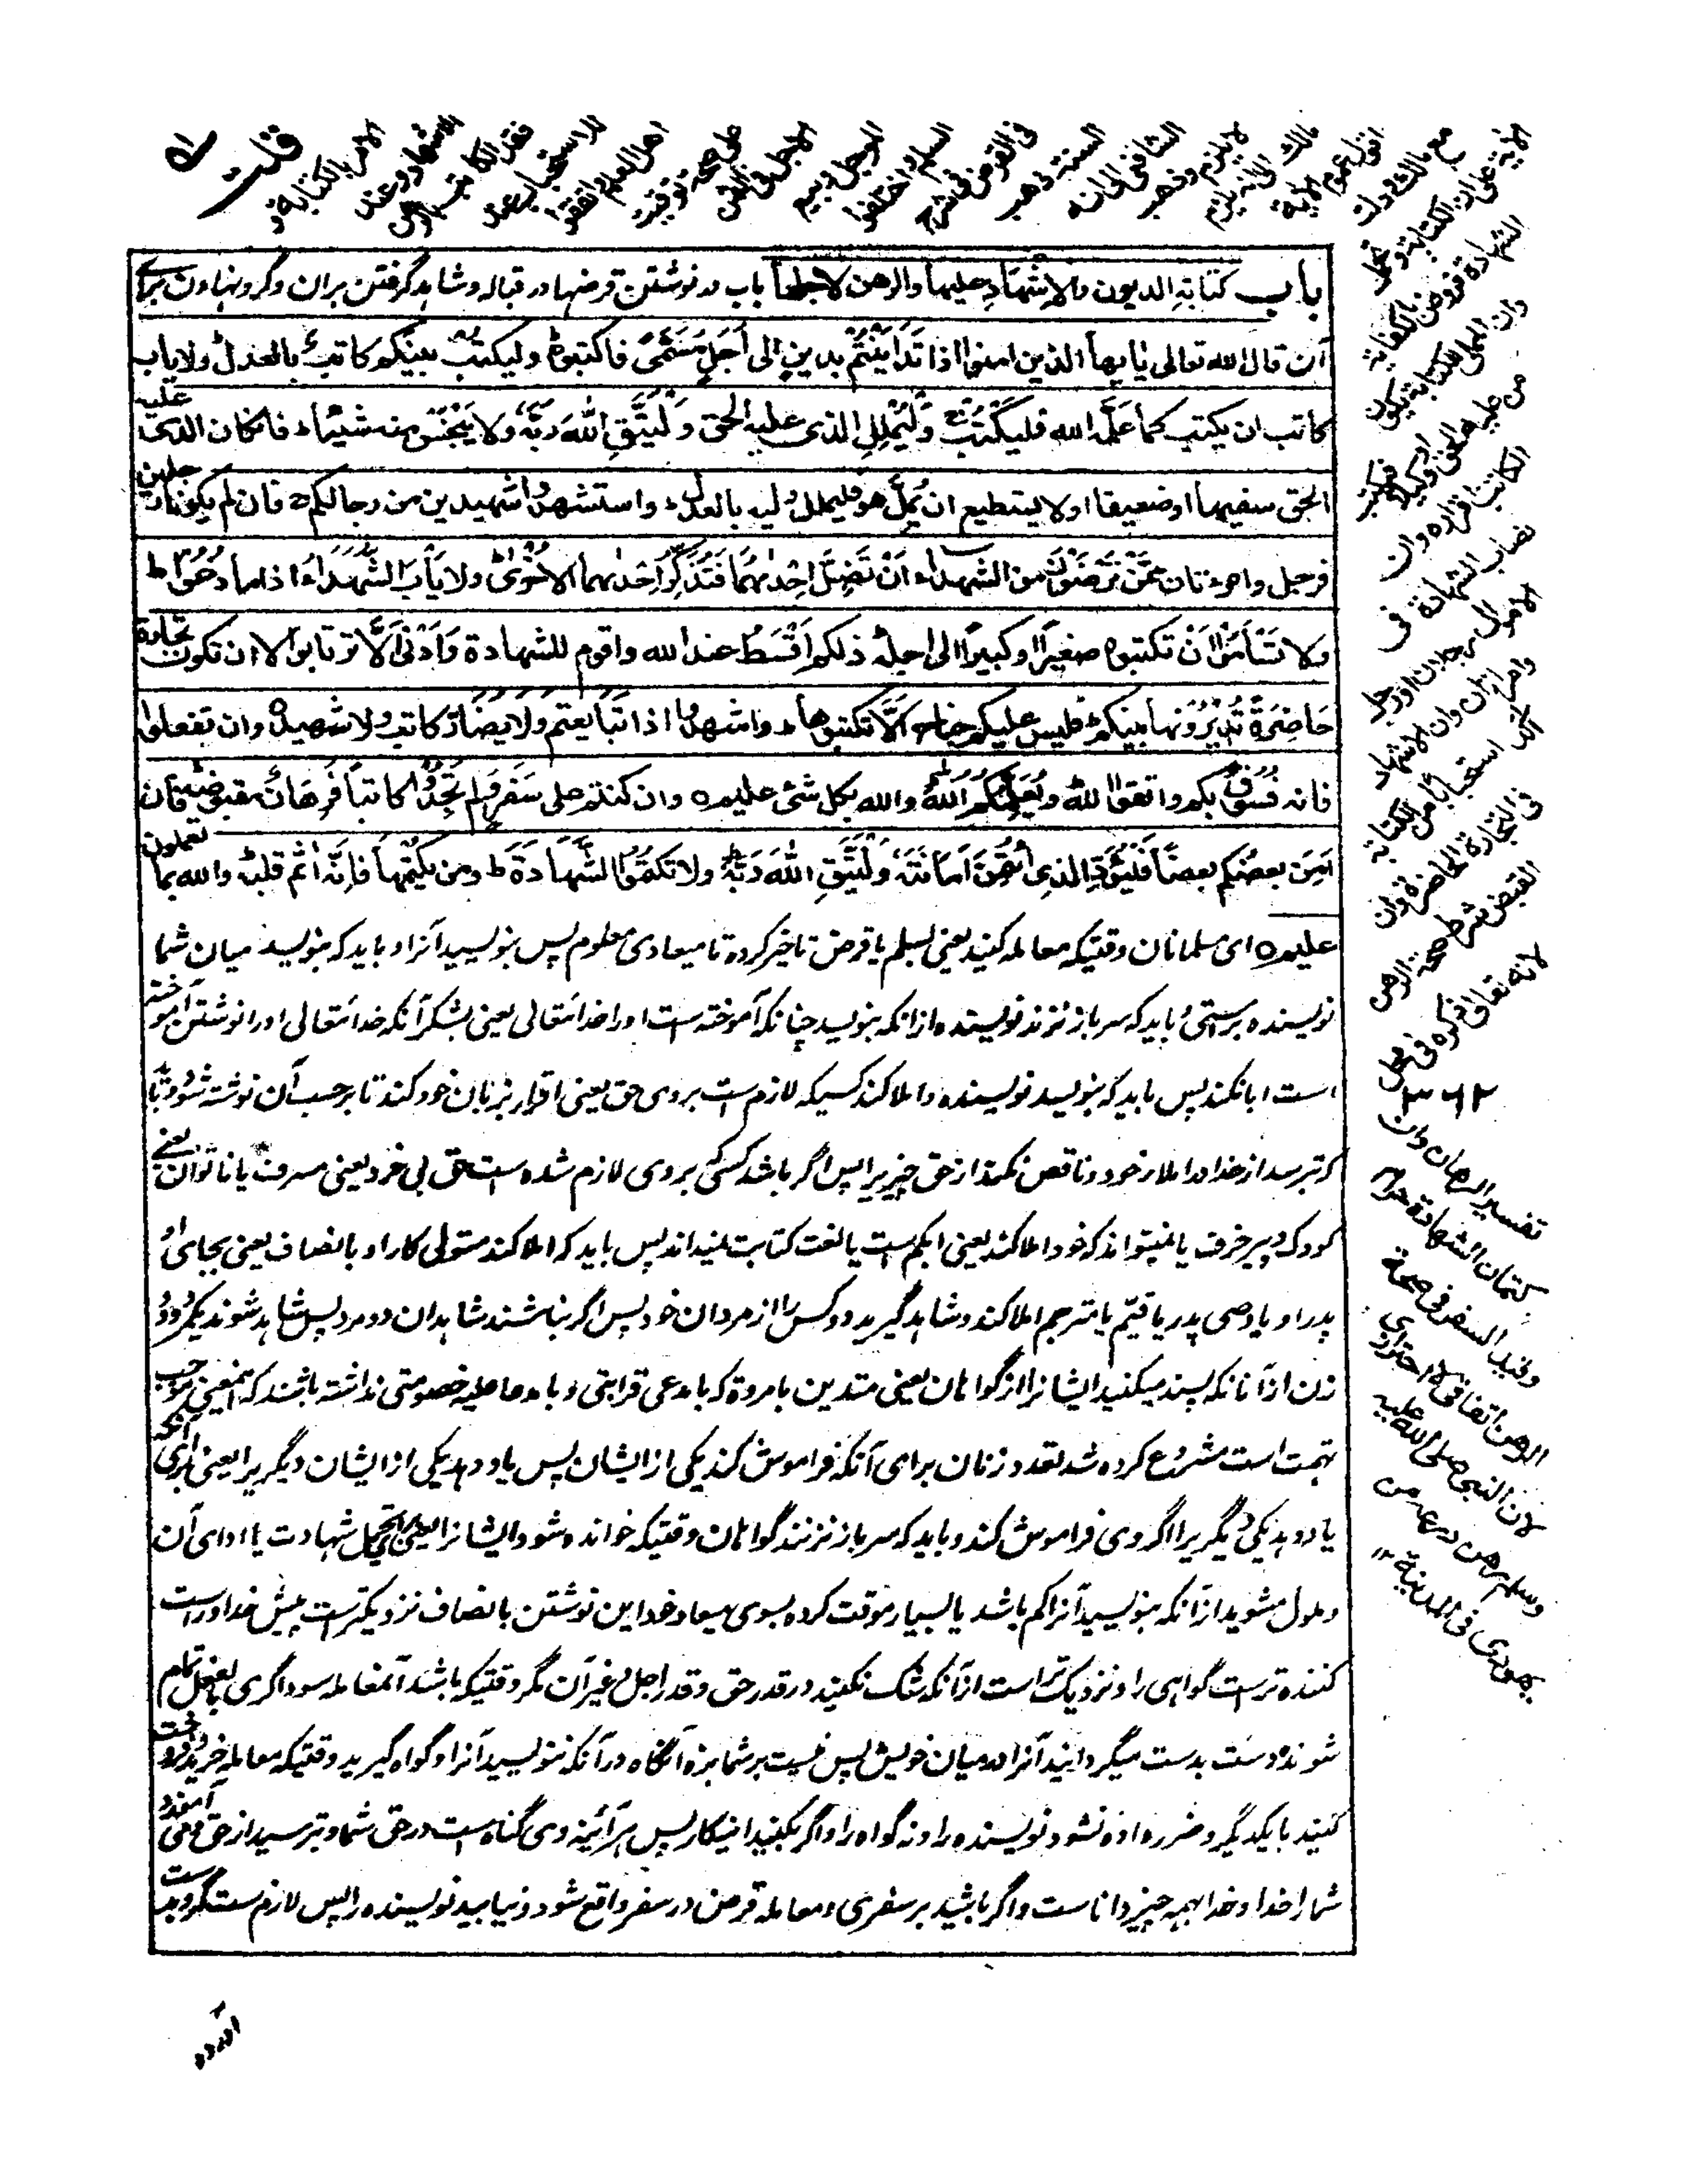 باب كتابة الديون والاشهاد عليها والرهن لاجلها باب در نوشتن قرضها در قباله وشاهد گرفتن بران وگرو نهادن برای
آن قال الله تعالى يايها الذين امنوا اذا تَدَايَنْتُمْ بدين الى اَجَلٍ مُسَمًّى فاكتبوه وليكتب بينكم كاتب بالعدل ولا ياب
كاتب ان يكتب كما عَلَّمَه الله فليكتب وَلْيُمْلِلِ الذى عليه الحق وَلْيَتَّقِ اللهَ رَبَّه ولا يَبْخَسْ منه شيئا فان كان الذى عليه
الحق سفيها او ضعيفا او لا يستطيع ان يُمِلَّ هو فليملل وليه بالعدل واستشهدوا شهيدين من رجالكم فان لم يكونا رجلين
فرجل وامرءتان مِمَّنْ تَرْضَوْنَ من الشهداء اَنْ تَضِلَّ اِحْدٰىهُمَا فَتُذَكِّرَ اِحْدٰىهما الاُخْرٰى ولا يَأْبَ الشُّهَدَاءُ اذا ما دُعُوْا
ولا تَسْأَمُوْا اَنْ تكتبوه صغيرًا او كبيرًا الى اجله ذلكم اَقْسَطُ عند الله واقوم للشهادة وَاَدْنٰى اَلَّا ترتابوا الا ان تكون تجارة
حَاضِرَةً تُدِيْرُوْنَها بينكم فليس عليكم جناح اَلَّا تكتبوها واشهدوا اذا تَبَايعتم ولا يضَارَّ كاتب ولا شهيد وان تفعلوا
فانه فُسُوْقٌ بكم واتقوا الله ويُعَلِّمُكُمُ اللهُ والله بكل شئ عليم ه وان كنتم على سَفَرٍ ولم تَجِدُوْا كاتبًا فَرِهَانٌ مقبوضة فان
اَمِنَ بعضُكم بعضًا فَلْيُؤَدِّ الذِى اؤْتُمِنَ اَمَانَتَهُ وَلْيَتَّقِ اللهَ رَبَّهُ ولا تَكْتُمُوا الشَّهَادَةَ ومن يكتمها فاِنَّهٗ اٰثم قلبه والله بما تعملون
عليم ه ای مسلمانان وقتیکه معامله کنید یعنی بسلم یا قرض تاخیر کرده تا میعادی معلوم پس بنویسید آنرا و باید که بنویسد میان شما
نویسنده براستی و باید که سر باز نزند نویسنده از آنکه بنویسد چنانکه آموخته است او را خدایتعالی یعنی بشکر آنکه خدایتعالی او را نوشتن آموخته
است ابا نکند پس باید که بنویسد نویسنده و املا کند کسیکه لازم است بروی حق یعنی اقرار بزبان خود کند تا بر حسب آن نوشته شود و باید
که بترسد از خدا در املاء خود و ناقص نکند از حق چیزیرا پس اگر باشد کسیکه بروی لازم شده است حق بی خرد یعنی مسرف یا ناتوان یعنی
کودک و پیر خرف یا نمیتواند که خود املا کند یعنی ابکم است یا لغت کتابت نمیداند پس باید که املا کند متولی کار او بانصاف یعنی بجای او
پدر او یا وصی پدر یا قیّم یا مترجم املا کند و شاهد گیرید دو کس را از مردان خود پس اگر نباشند شاهدان دو مرد پس شاهد شوند یکمرد و دو
زن از آنانکه پسند میکنید ایشانرا از گواهان یعنی متدین با مروة که با مدعی قرابتی و با مدعا علیه خصومتی نداشته باشند که اینمعنی موجب
تهمت است مشروع کرده شد تعدد زنان برای آنکه فراموش کند یکی از ایشان پس یاد دهد یکی از ایشان دیگریرا یعنی برای آنکه
یاد دهد یکی دیگریرا اگر وی فراموش کند و باید که سر باز نزنند گواهان وقتیکه خوانده شود ایشانرا یعنی برای تحمل شهادت یا ادای آن
و ملول مشوید از آنکه بنویسید آنرا کم باشد یا بسیار موقت کرده بسوی میعاد خود این نوشتن بانصاف نزدیکتر است پیش خدا و راست
کننده تر است گواهی را و نزدیک تر است از آنکه شک نکنید در قدر حق و قدر اجل و غیر آن مگر وقتیکه باشد آنمعامله سوداگری بالفعل تمام
شونده دست بدست میگردانید آنرا در میان خویش پس نیست بر شما بزه آنگاه در آنکه ننویسید آنرا و گواه گیرید وقتیکه معامله خرید و فروخت
کنید با یکدیگر و ضرر داده نشود نویسنده را و نه گواه را و اگر بکنید اینکار پس هر آئینه وی گناه است در حق شما و بترسید از حق و می آموزد
شما را خدا و خدا بهمه چیز دانا است و اگر باشید بر سفری و معامله قرض در سفر واقع شود و نیابید نویسنده را پس لازم است گرو بدست
قلت
الامر بالكتابة و
الاشهاد وعند
فقد الكاتب الرهن
للاستحباب عند
اهل العلم واتفقوا
على صحة توقيت
الاجل فى الثمن
المؤجل وسم
السلم واختلفوا
فى القرض فى شرح
السنة ذهب
الشافعى الى انه
لا يلزم وذهب
مالك الى انه يلزم
اقول عموم الاية
مع مالك ودلت
الاية على ان الكتابة وتحمل
الشهادة فروض بالكفاية
وان المملى للكتابة يكون
من عليه الحق او وكيله فيكتب
الكاتب اقراره وان
نصاب الشهادة فى
الاموال رجلان او رجل
وامراتان وان الاشهاد
اكد استحبابا من الكتابة
فى التجارة الحاضرة وان
القبض شرط صحة الرهن
لانه تعالى ذكره فى محل
تفسير الرهان وان
كتمان الشهادة حرام
وقيد السفر فى صحة
الرهن اتفاقى لا احترازى
لان النبى صلى الله عليه
وسلم رهن درعه من
يهودى فى المدينة ١٢